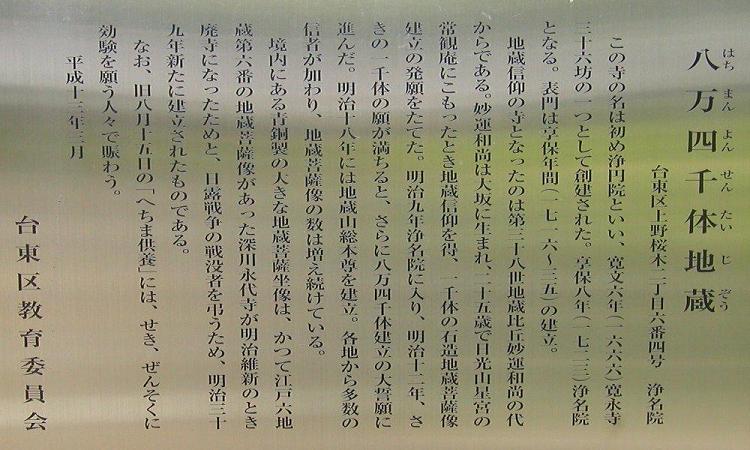 はちまんよんせんたいじぞう
八万四千体地蔵
台東区上野桜木二丁目六番四号　浄名院
この寺の名は初め浄円院といい、寛文六年（一六六六）寛永寺
三十六坊の一つとして創建された。享保八年（一七二三）浄名院
となる。表門は享保年間（一七一六～三五）の建立。
地蔵信仰の寺となったのは第三十八世地蔵比丘妙運和尚の代
からである。妙運和尚は大坂に生まれ、二十五歳で日光山星宮の
常観庵にこもったとき地蔵信仰を得、一千体の石造地蔵菩薩像
建立の発願をたてた。明治九年浄名院に入り、明治十二年、さ
きの一千体の願が満ちると、さらに八万四千体建立の大誓願に
進んだ。明治十八年には地蔵山総本尊を建立。各地から多数の
信者が加わり、地蔵菩薩像の数は増え続けている。
境内にある青銅製の大きな地蔵菩薩坐像は、かつて江戸六地
蔵第六番の地蔵菩薩像があった深川永代寺が明治維新のとき
廃寺になったためと、日露戦争の戦没者を弔うため、明治三十
九年新たに建立されたものである。
なお、旧八月十五日の「へちま供養」には、せき、ぜんそくに
効験を願う人々で賑わう。
平成十三年三月
台東区教育委員会